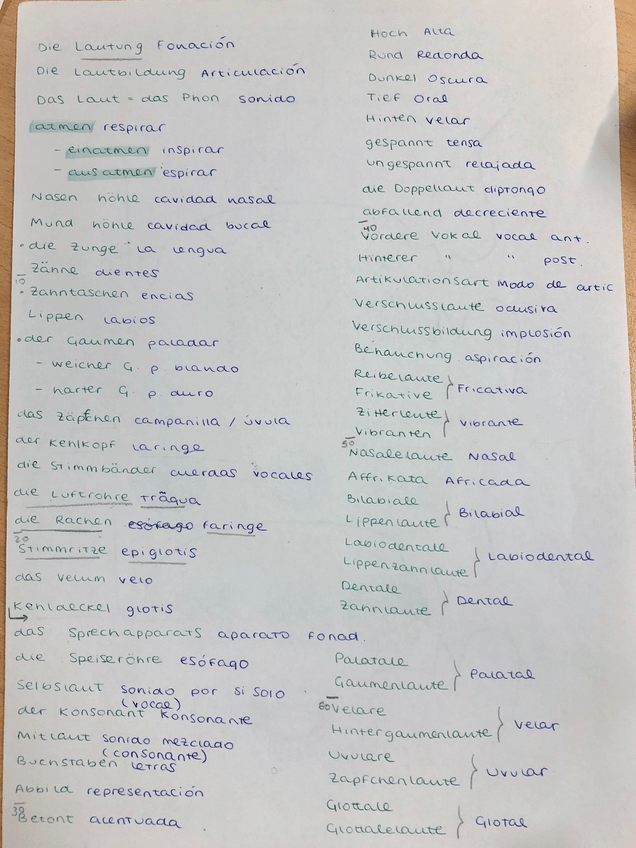 Die Lautung Fonación
Die Lautbildung Articulación
Das Laut = das Phon sonido
atmen respirar
- einatmen inspirar
- ausatmen espirar
Nasen höhle cavidad nasal
Mund höhle cavidad bucal
• die Zunge la lengua
Zänne dientes
10
• Zahntaschen encias
Lippen labios
• der Gaumen paladar
- weicher G. p. blando
- harter G. p. duro
das Zäpfchen campanilla / úvula
der Kehlkopf laringe
die Stimmbänder cuerdas vocales
die Luftrohre tráqua
die Rachen esófago faringe
20
Stimmritze epiglotis
das velum velo
Kehldeckel glotis
das Sprechapparats aparato fonad.
die Speiseröhre esófago
Selbslaut sonido por si solo
(vocal)
der Konsonant Konsonante
Mitlaut sonido mezclado
(consonante)
Buchstaben letras
Abbild representación
30
Betont acentuada
Hoch Alta
Rund Redonda
Dunkel Oscura
Tief Oral
Hinten velar
gespannt tensa
ungespannt relajada
die Doppellaut diptongo
abfallend decreciente
40
Vordere Vokal vocal ant.
Hinterer " " post.
Artikulationsart Modo de artic
Verschlusslaute oclusiva
Verschlussbildung implosión
Behauchung aspiración
Reibelaute
Frikative Fricativa
Zitterlaute
Vibranten vibrante
50
Nasalelaute Nasal
Affrikata Africada
Bilabiale
Lippenlaute Bilabial
Labiodentale
Lippenzahnlaute Labiodental
Dentale
Zahnlaute Dental
Palatale
Gaumenlaute Palatal
60
Velare
Hintergaumenlaute velar
Uvulare
Zäpfchenlaute Uvular
Glottale
Glottalelaute Glotal